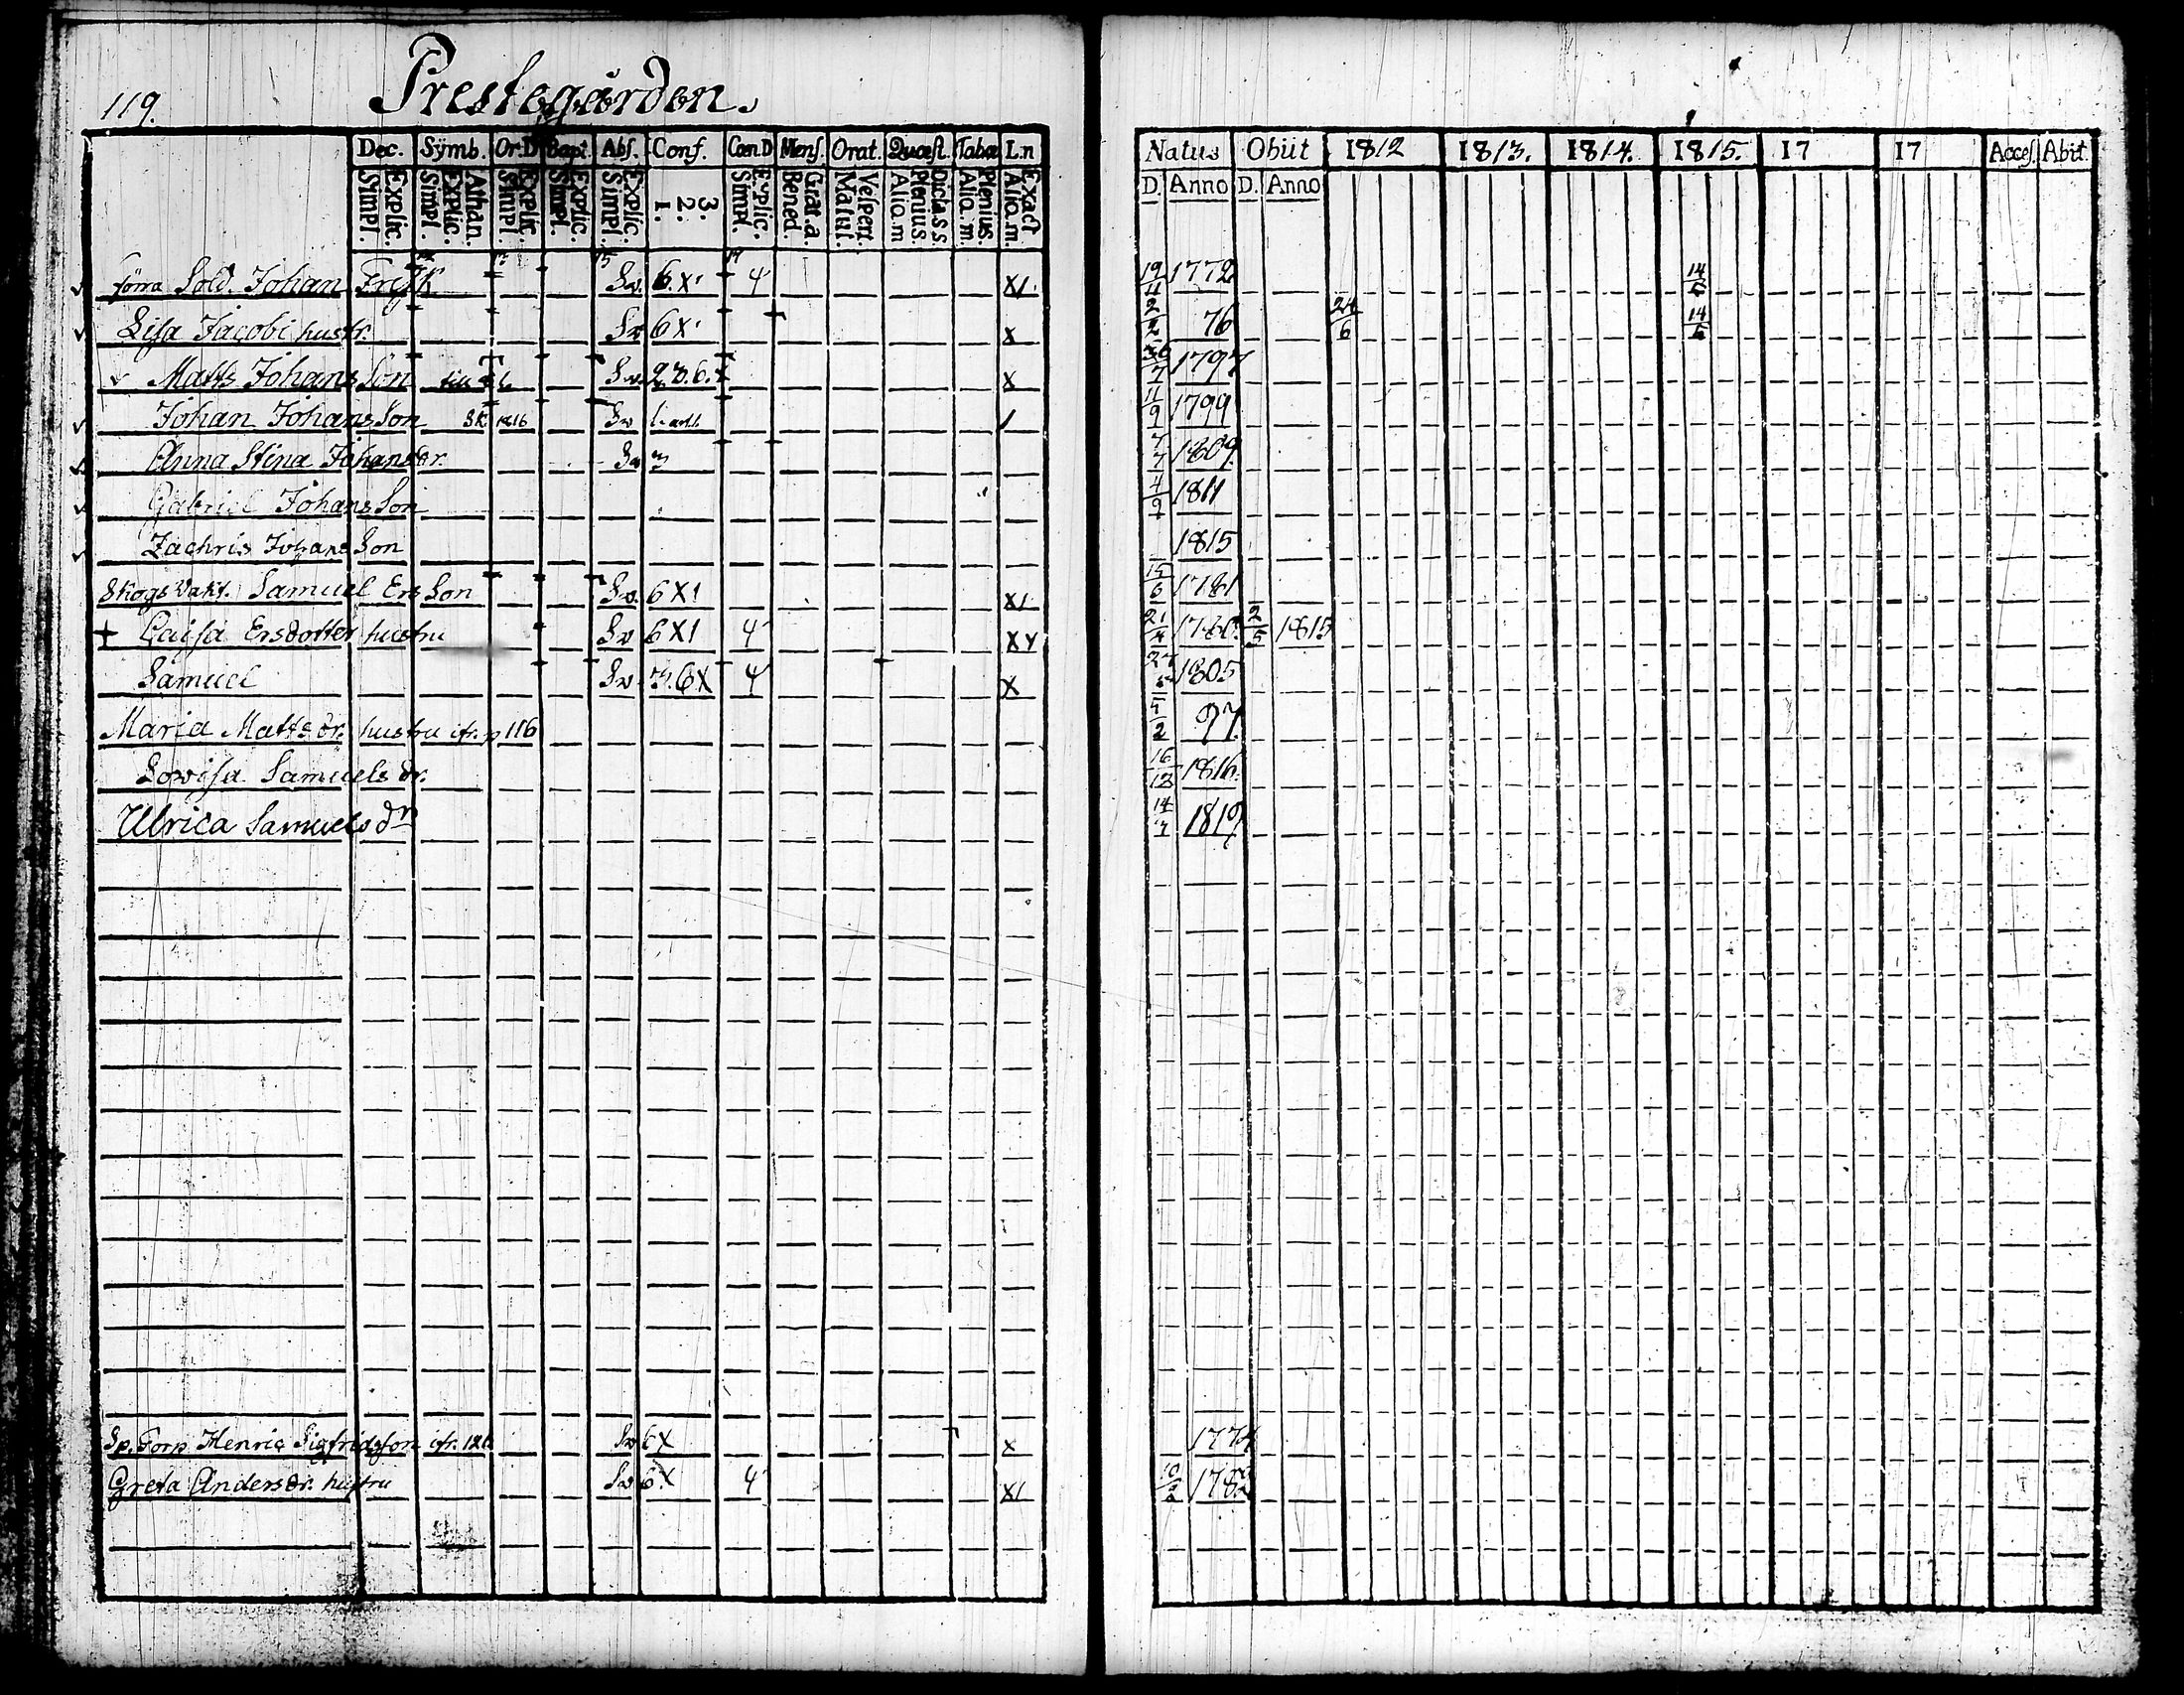 119.
Prestegården.
Dec. Sÿmb. Or.D Bapt. Abs. Conf. Cœn D Mens. Orat. Quæst. Tabæ L.n
Explic. Simpl. Athan. Explic. Simpl. Explic. Simpl. Explic. Simpl. Explic. Simpl. 3. 2. 1. Explic. Simpl. Grat.a. Bened. Vespert. Matut. Plenius. Aliq.m Plenius. Aliq.m. Exact Aliq.m.
Natus Obiit 1812 1813. 1814. 1815. 17 17 Acces. Abit.
D. Anno D. Anno
förra Sold. Johan Sv. 6.X1 4 X1. 19/11 1772 14/5
Lisa Jacobi hustr. Sv 6X1 X 2/2 76 24/6 14/5
Matts Johans Son Sv. X 1797
Johan Johans Son Sk. 1816 Sv 11/9 1799
Anna Stina Johansdr. Sv 3 7/7 1809
Gabriel Johans Son 4/9 1811
Zachris Johans Son 1815
Skogs Vakt. Samuel Ers Son Sv. 6X1 X1. 15/6 1781
+ Caisa Ersdotter hustru Sv 6X1 4 XX 2/5 1815
Samuel Sv 3.6X 4 X 1805
Maria Matts dr. hustru ifr. p 116 97
Lovisa Samuels dr. 16/12 1816.
Ulrica Samuels dr 14/7 1819
Sp. Torp Henric Sigfridsson ifr. 126 Sv 6X X 1774
Greta Andersdr. hustru Sv 6X 4 X1 10/2 1782